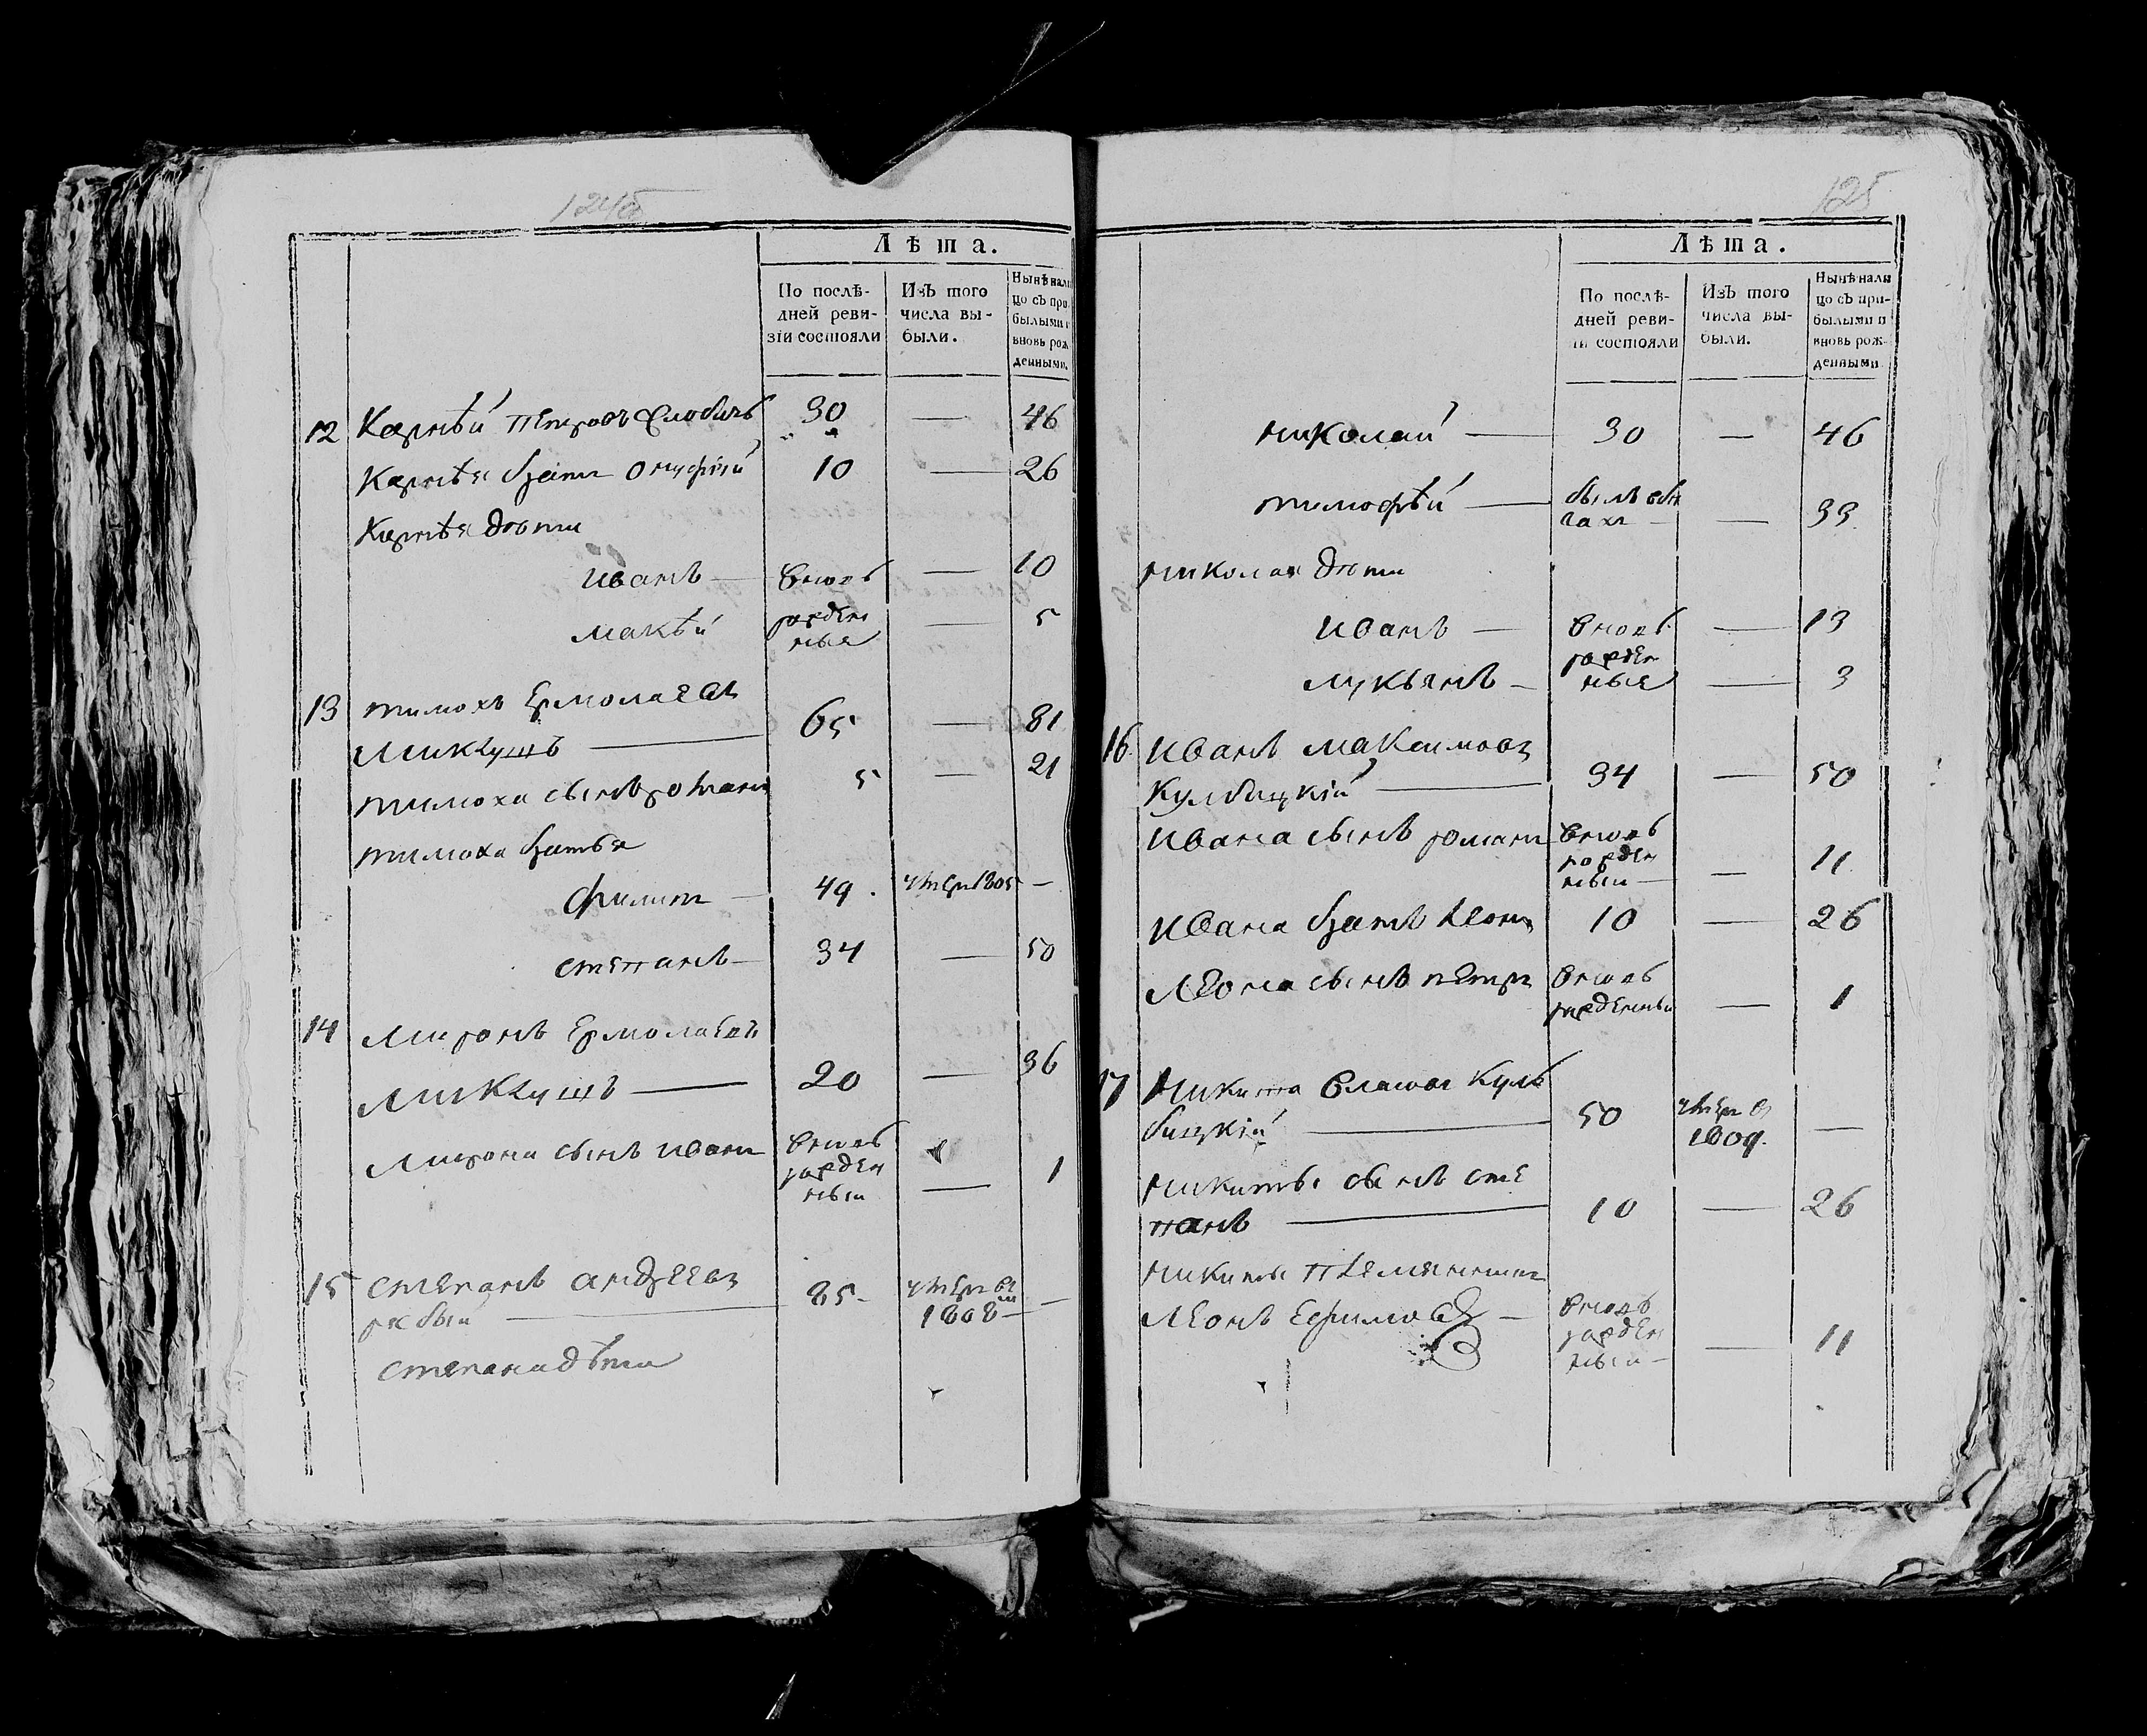 125
Лѣта.
По послѣ-
дней реви-
зіи состояли
Изъ того
числа вы-
были.
Нынѣ нали
цо съ при
былыми и
вновь рож
денными.
12 Карнѣй Петровъ 30 — 46
Карнѣя братъ Онуфрій 10 — 26
Карнѣя дѣти
Иванъ — вновь — 10
Макѣй рожден — 5
ные
13 Тимохъ Ермолаевъ
Миклушъ — 65 — 81
Тимоха сынъ Романъ 5 — 21
Тимоха братья
Филипъ — 49 умеръ 1805 —
Степанъ — 34 — 50
14 Миронъ Ермолаевъ
Миклушъ — 20 — 36
Мирона сынъ Иванъ вновь
рожден — 1
ный
15 Степанъ Андреевъ
Рябый — 85 умеръ въ
1808 —
Степана дѣти
Лѣта.
По послѣ-
дней реви-
зіи состояли
Изъ того
числа вы-
были.
Нынѣ нали
цо съ при-
былыми и
вновь рож-
денными
Николай — 30 — 46
Тимофѣй — былъ въ бѣ
гахъ — 33
Николая дѣти
Иванъ — вновь — 13
рожден
Лукьянъ — ные — 3
16 Иванъ Максимовъ
Кулбицкій — 34 — 50
Ивана сынъ Романъ вновь
рожден
ный — 11
Ивана братъ Леонъ 10 — 26
Леона сынъ Петръ вновь
рожденный — 1
17 Никита Власовъ Куль
бицкій — 50 умеръ в
1809. —
Никиты сынъ Сте
панъ — 10 — 26
Никиты племянникъ
Леонъ Ефимовъ — вновь
рожден
ный — 11